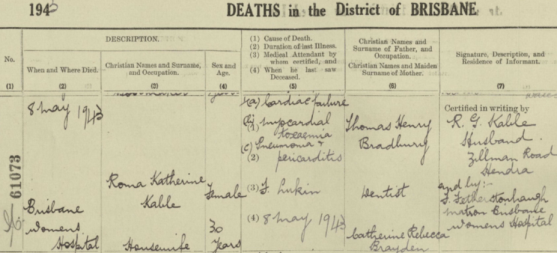 1943
DEATHS in the District of BRISBANE
DESCRIPTION.
No.
When and Where Died.
Christian Names and Surname, and Occupation.
Sex and Age.
(1) Cause of Death.
(2) Duration of last Illness.
(3) Medical Attendant by whom certified, and
(4) When he last saw Deceased.
Christian Names and Surname of Father, and Occupation.
Christian Names and Maiden Surname of Mother.
Signature, Description, and Residence of Informant.
(1)
(2)
(3)
(4)
(5)
(6)
(7)
61073
8 May 1943
Brisbane
Womens
Hospital
Roma Katherine
Kable
Housewife
Female
30
Years
(a) Cardiac Failure
(b) Myocardial
(1)
toxaemia
(c) Pneumonia &
(2)
pericarditis
(3) F. Lukin
(4) 8 May 1943
Thomas Henry
Bradbury
Dentist
Catherine Rebecca
Brayden
Certified in writing by
R. G. Kable
Husband
Zillman Road
Hendra
and by:-
F. Fetherstonhaugh
Matron Brisbane
Womens Hospital